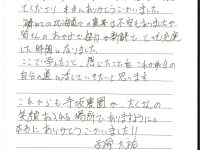 てくださり 本当にありがとうございました。
初めての北海道での農業は不安もありましたが
皆さんのおかげで毎日が新鮮で、とても充実
した時間になりました。
ここで学んだこと、感じたことを
自分の道に活かしていきたいと思います
これからも 農園が、たくさんの
笑顔あふれる場所でありますように。
本当にありがとうございました!!